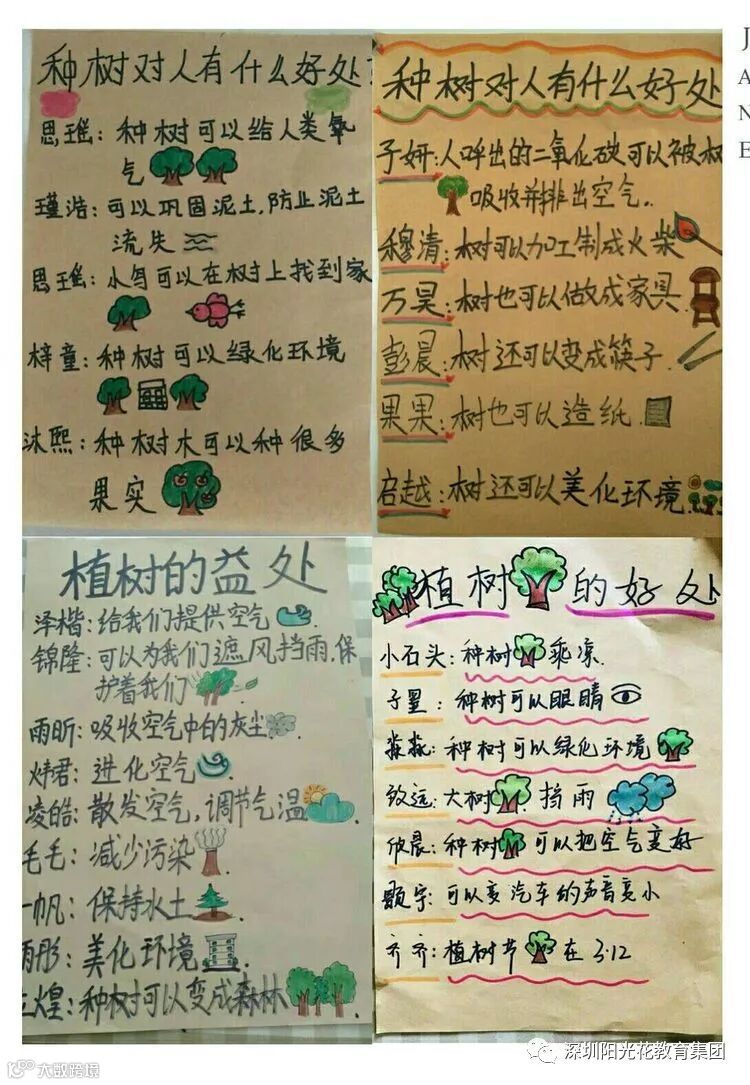 种树对人有什么好处?
思瑶:种树可以给人类氧
气
瑾浩:可以巩固泥土,防止泥土
流失
思瑶:小鸟可以在树上找到家
梓童:种树可以绿化环境
沐熙:种树木可以种很多
果实
种树对人有什么好处
子妍:人呼出的二氧化碳可以被树
吸收并排出空气.
穆清:树可以加工制成火柴
万昊:树也可以做成家具.
彭晨:树还可以变成筷子.
果果:树也可以造纸.
启越:树还可以美化环境.
植树的益处
泽楷:给我们提供空气
锦隆:可以为我们遮风挡雨.保
护着我们
雨昕:吸收空气中的灰尘
炜君:进化空气
凌皓:散发空气,调节气温
毛毛:减少污染
一帆:保持水土
雨彤:美化环境
煌:种树可以变成森林
植树的好处
小石头:种树乘凉.
子墨:种树可以眼睛
淼淼:种树可以绿化环境
致远:大树挡雨
欣晨:种树可以把空气变好
颢宇:可以变汽车的声音变小
齐齐:植树节在3.12
J
A
N
E
深圳阳光花教育集团
大数跨境